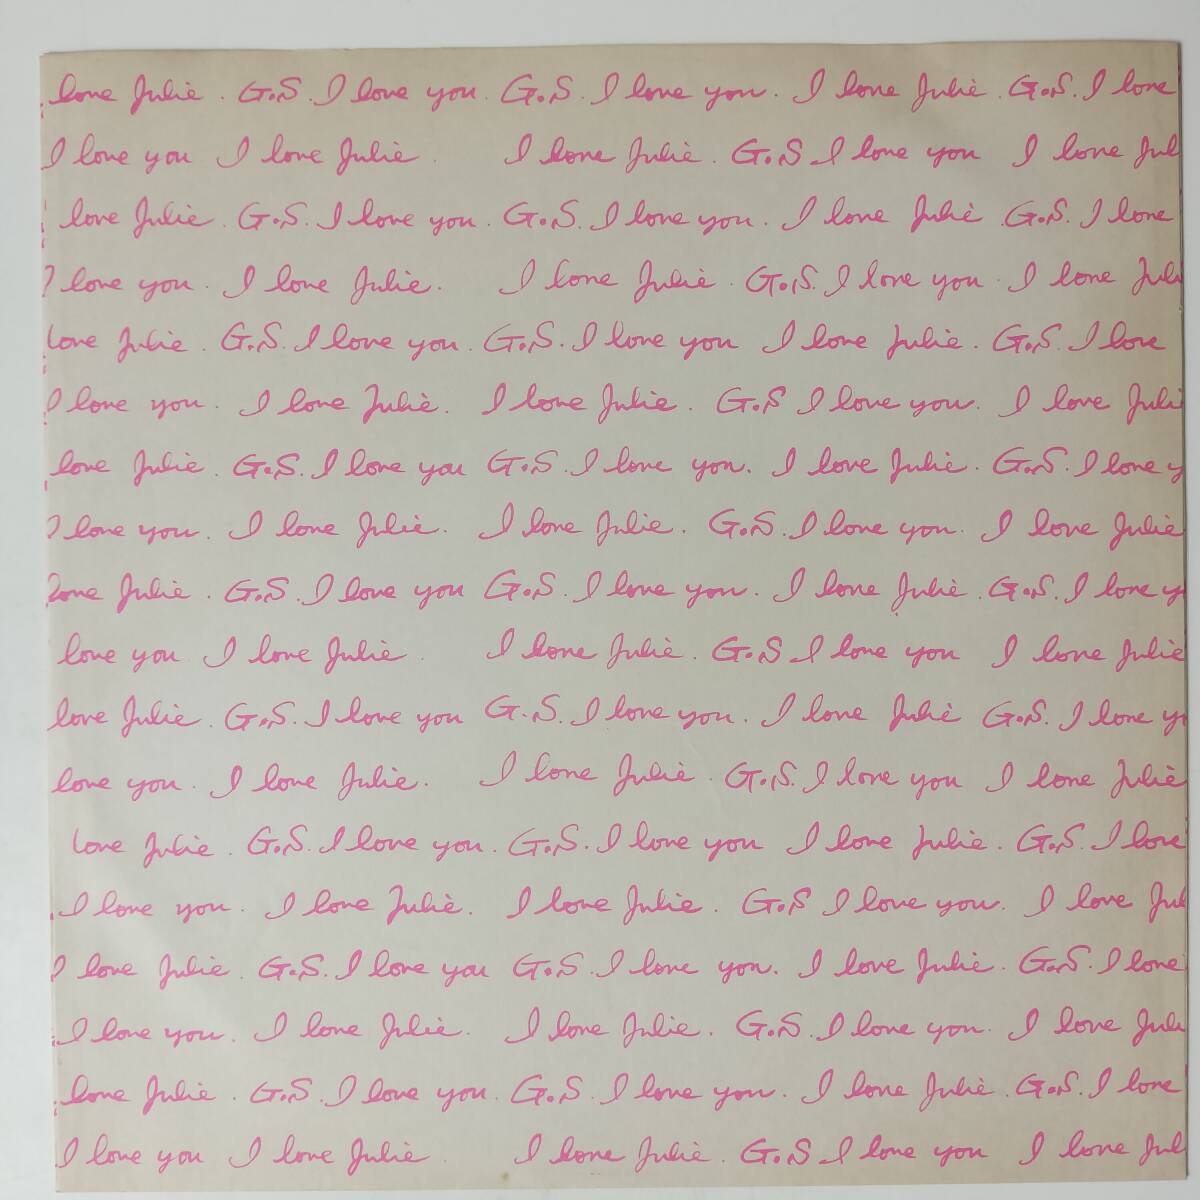 love Julie. G.S. I love you. G.S. I love you. I love Julie. G.S. I love
I love you I love Julie. I love Julie. G.S I love you I love Jul
love Julie. G.S. I love you. G.S. I love you. I love Julie. G.S. I love
I love you. I love Julie. I love Julie. G.S. I love you. I love Juli
love Julie. G.S. I love you. G.S. I love you I love Julie. G.S. I love
I love you. I love Julie. I love Julie. G.S I love you. I love Juli
love Julie. G.S. I love you G.S. I love you. I love Julie. G.S. I love y
I love you. I love Julie. I love Julie. G.S. I love you. I love Julie
love Julie. G.S. I love you G.S. I love you. I love Julie. G.S. I love y
love you I love Julie. I love Julie. G.S I love you I love Julie
love Julie. G.S. I love you G.S. I love you. I love Julie G.S. I love y
love you. I love Julie. I love Julie. G.S. I love you I love Julie
love Julie. G.S. I love you. G.S. I love you I love Julie. G.S. I love
I love you. I love Julie. I love Julie. G.S I love you. I love Jul
I love Julie. G.S. I love you G.S. I love you. I love Julie. G.S. I love
I love you. I love Julie. I love Julie. G.S. I love you. I love Juli
love Julie. G.S. I love you. G.S. I love you. I love Julie. G.S. I love
I love you I love Julie. I love Julie. G.S I love you I love Jul